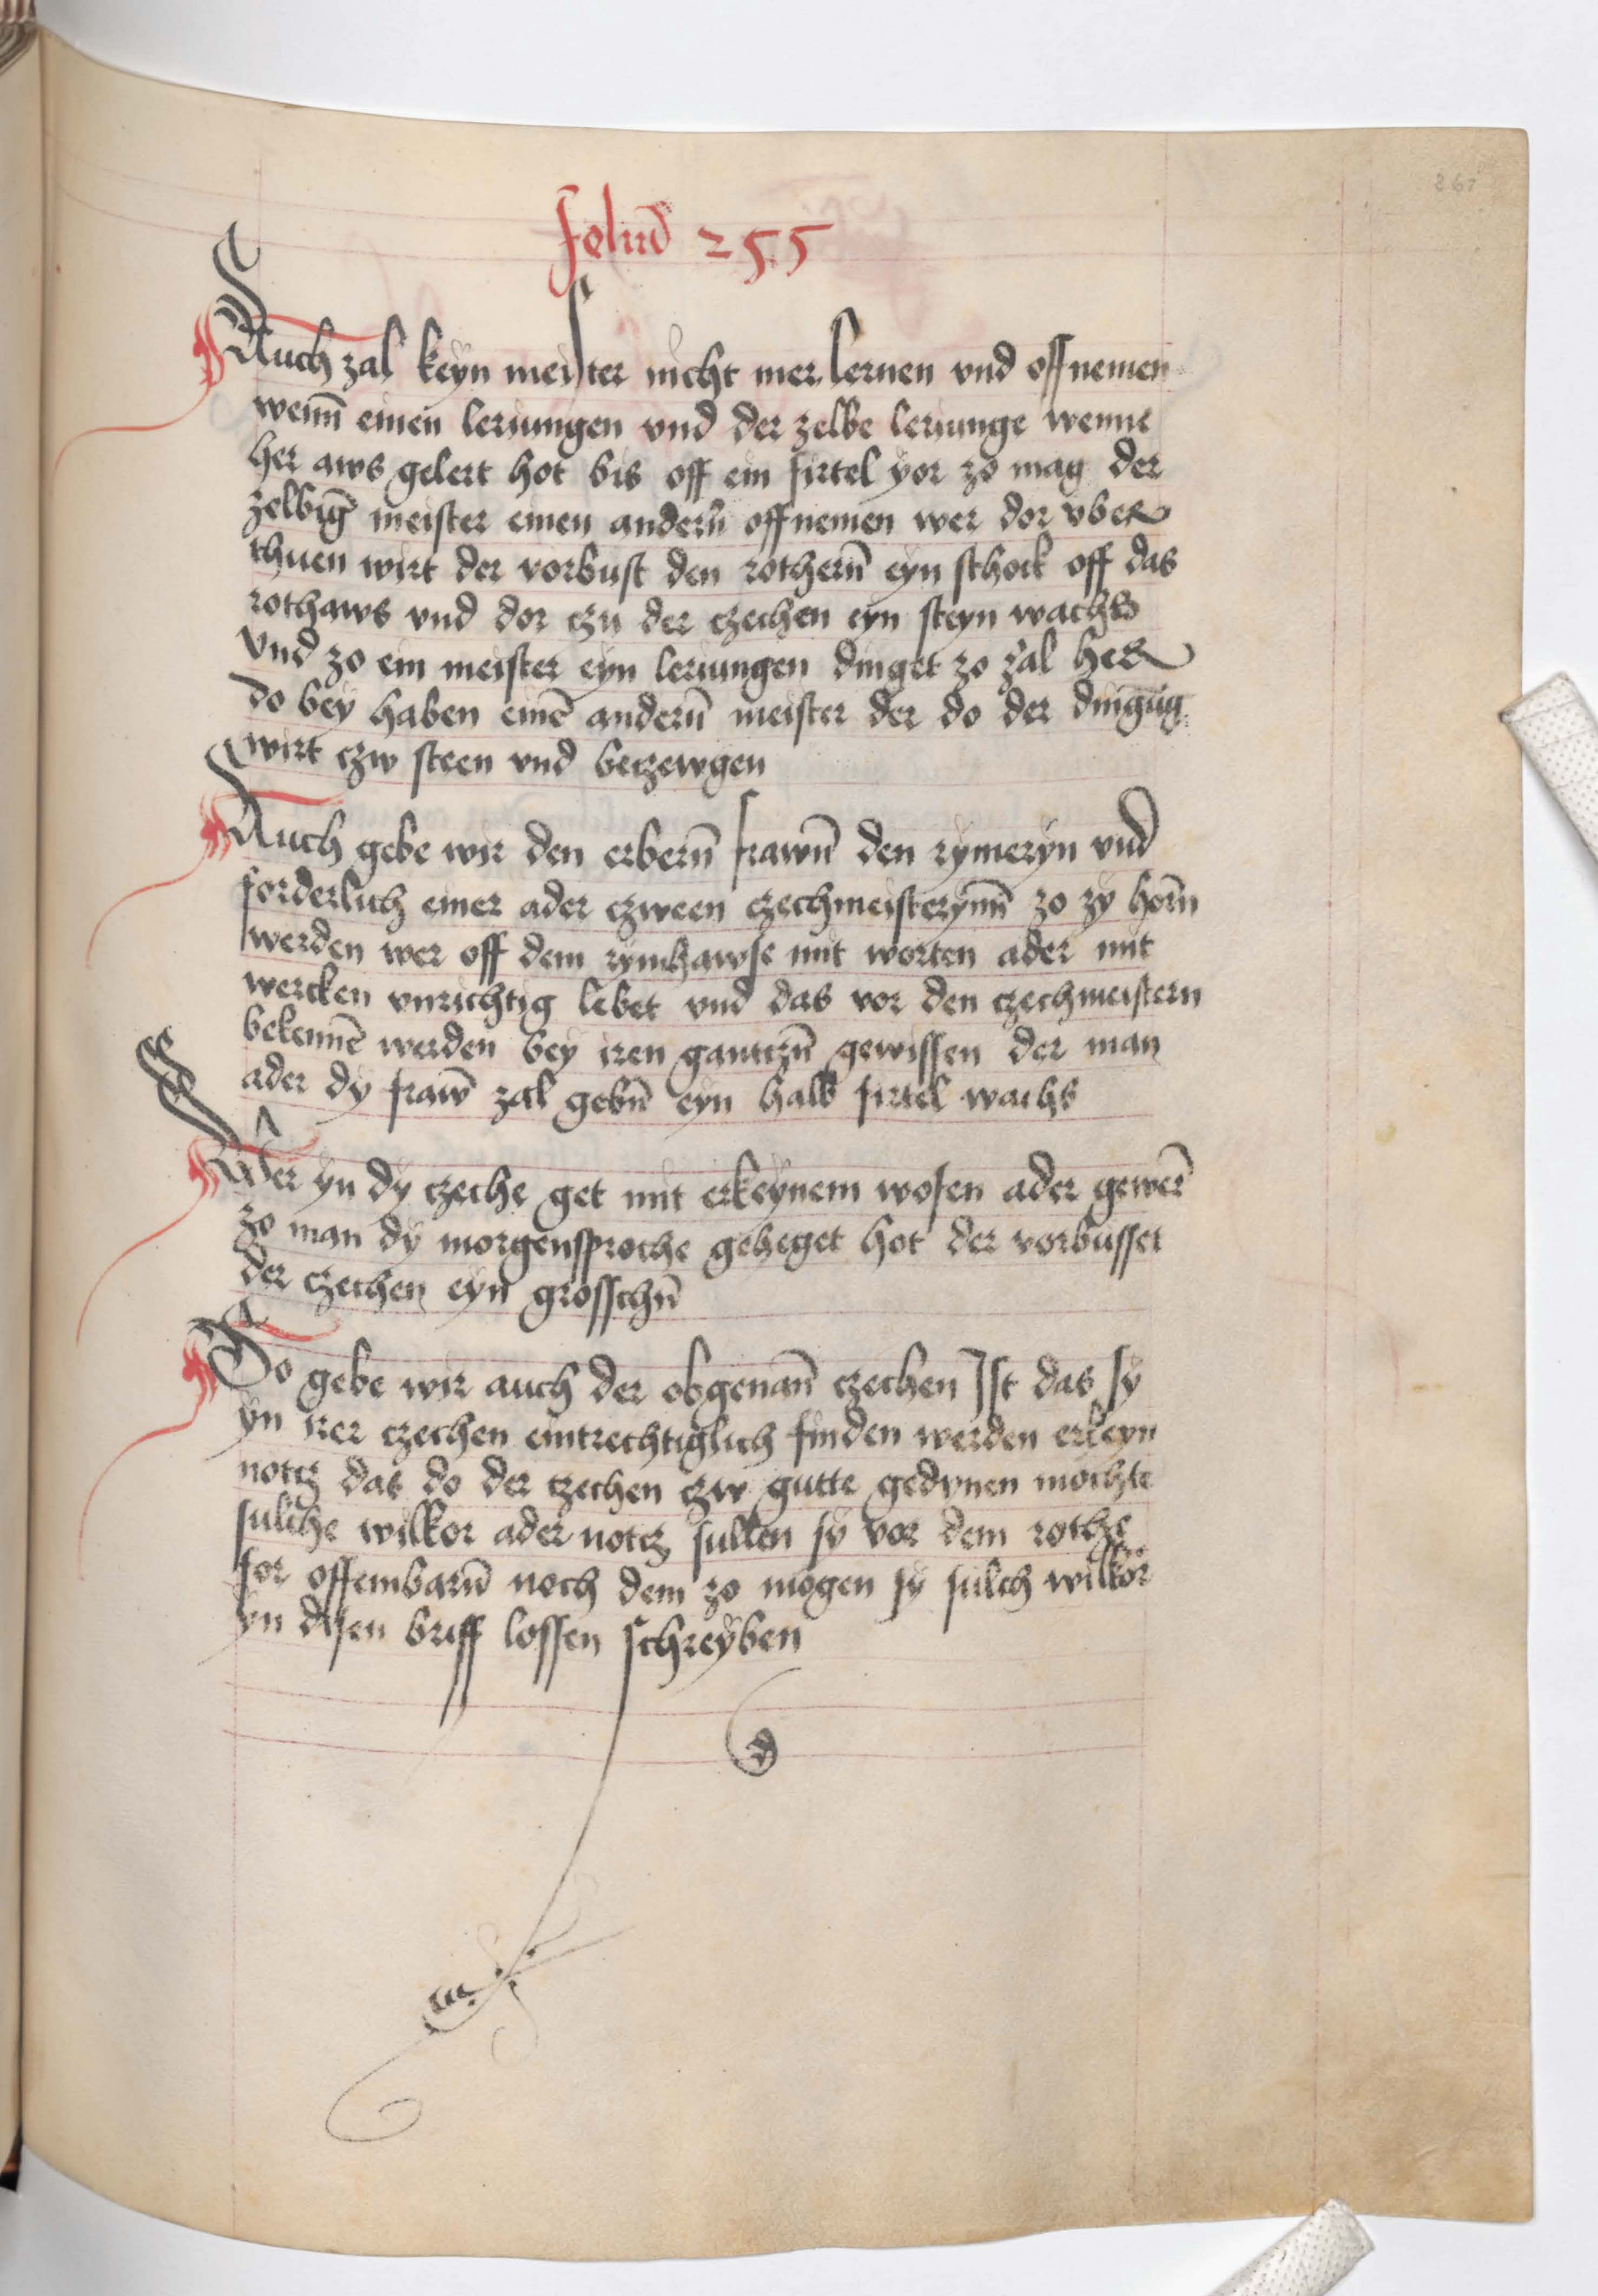 261
foliū 255
Auch zal keyn meister nicht mer lernen vnd offnemen
wenn̄ einen leriungen vnd der zelbe leriunge wenne
her aws gelert hot bis off ein firtel yor zo mag der
zelbiḡ meister einen andern̄ offnemen wer dor vber
thuen wirt der vorbust den rothern̄ eyn schock off das
rothaws vnd dor czu der czechen eyn steyn wachs
Vnd zo ein meister eyn leriungen dinget zo zal her
do bey haben einē andern̄ meister der do der dingūg
wirt czw steen vnd beczewgen
Auch gebe wir den erbern̄ frawn̄ den rymeryn vnd
forderlich einer ader czween czechmeisterynn̄ zo zy horn̄
werden wer off dem rymhawse mit worten ader mit
wercken vnrichtig lebet vnd das vor den czechmeistern
bekennē werden bey iren gantczn̄ gewissen der man
ader dy fraw̄ zal gebn̄ eyn halb firtel wachs
Wer yn dy czeche get mit erkeynem wofen ader gewer̄
zo man dy morgensproche geheget hot der vorbusset
der czechen eyn grosschn̄
So gebe wir auch der obgenan̄ czechen Ist das sy
yn irer czechen eintrechtiglich finden werden erkeyn
notcz das do der czechen czw gutte gedynen mochte
sulche wilkor ader notcz sullen sy vor dem rothe
for offembarn̄ noch dem zo mogen sy sulch wilkor
yn disen briff lossen schreyben